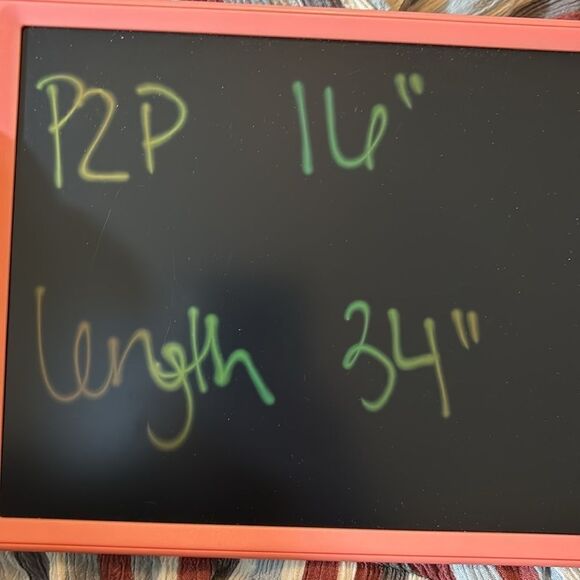 P2P 16"
length 34"